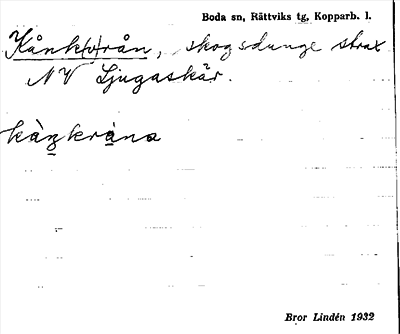 Boda sn, Rättviks tg, Kopparb. l.
Kånk(h)rån, skogsdunge strax
NV Ljugaskär.
kàŋkrå̀na
Bror Lindén 1932